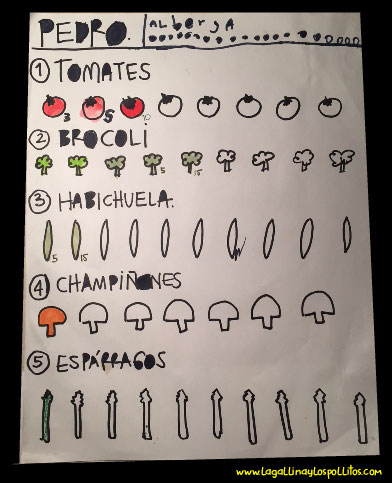 PEDRO. ALberJA
1 TOMATES
3 5 10
2 BROCOLi
5 15
3 HABICHUELA.
5 15
4 CHAMPIÑONES
5 ESPÁRRAGOS
www.LagallinayLospoLLitos.com